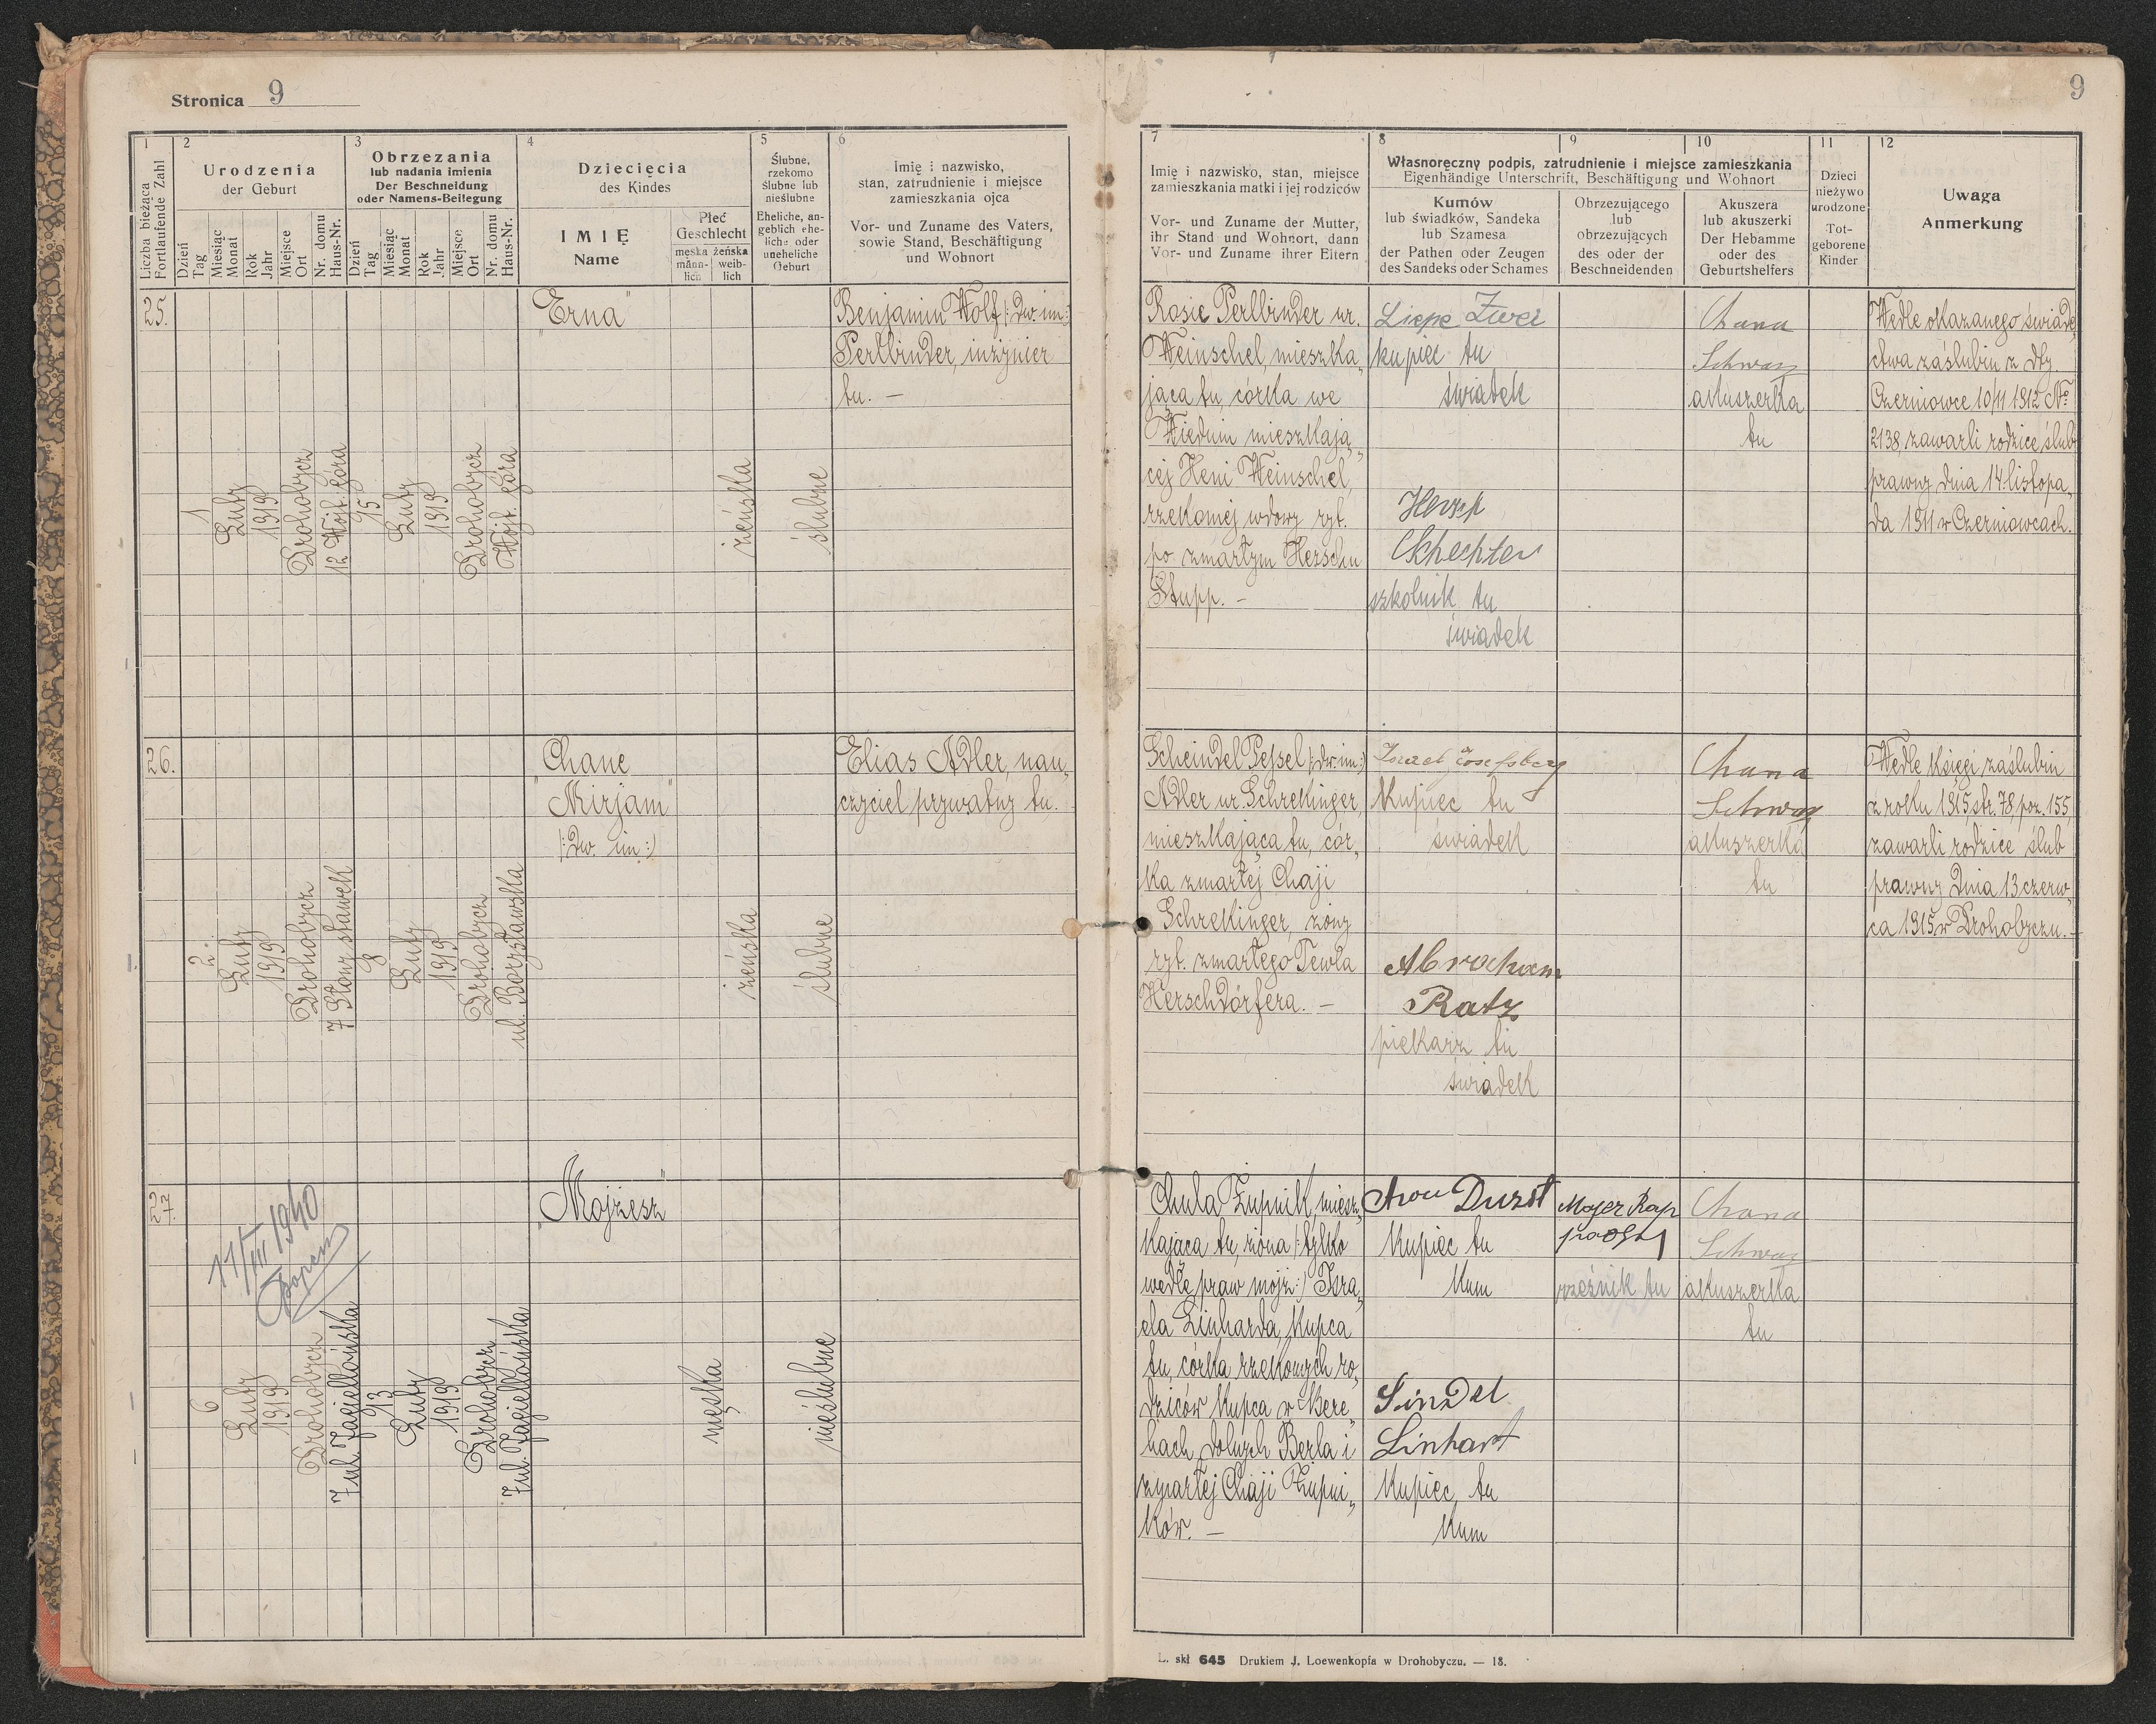 Stronica 9
9
1
Liczba bieżąca
Fortlaufende Zahl
2
Urodzenia
der Geburt
Dzień
Tag
Miesiąc
Monat
Rok
Jahr
Miejsce
Ort
Nr. domu
Haus-Nr.
3
Obrzezania
lub nadania imienia
Der Beschneidung
oder Namens-Beilegung
Dzień
Tag
Miesiąc
Monat
Rok
Jahr
Miejsce
Ort
Nr. domu
Haus-Nr.
4
Dziecięcia
des Kindes
IMIĘ
Name
Płeć
Geschlecht
męska
männ-
lich
żeńska
weib-
lich
5
Ślubne,
rzekomo
ślubne lub
nieślubne
Eheliche, an-
geblich ehe-
liche oder
uneheliche
Geburt
6
Imię i nazwisko,
stan, zatrudnienie i miejsce
zamieszkania ojca
Vor- und Zuname des Vaters,
sowie Stand, Beschäftigung
und Wohnort
7
Imię i nazwisko, stan, miejsce
zamieszkania matki i jej rodziców
Vor- und Zuname der Mutter,
ihr Stand und Wohnort, dann
Vor- und Zuname ihrer Eltern
8
9
10
Własnoręczny podpis, zatrudnienie i miejsce zamieszkania
Eigenhändige Unterschrift, Beschäftigung und Wohnort
Kumów
lub świadków, Sandeka
lub Szamesa
der Pathen oder Zeugen
des Sandeks oder Schames
Obrzezującego
lub
obrzezujących
des oder der
Beschneidenden
Akuszera
lub akuszerki
Der Hebamme
oder des
Geburtshelfers
11
Dzieci
nieżywo
urodzone
Tot-
geborene
Kinder
12
Uwaga
Anmerkung
25.
1
Luty
1919
Drohobycz
12 Wójt. góra
15
Luty
1919
Drohobycz
Wójt. góra
"Erna"
żeńska
ślubne
Benjamin Wolf (: dw. im:)
Perlbinder, inżynier
tu. —
Rosie Perlbinder ur.
Weinschel, mieszka„
jąca tu, córka we
Wiedniu mieszkają„
cej Heni Weinschel,
rzekomej wdowy ryt.
po zmarłym Herschu
Stupp. —
Liepe Zwer
kupiec tu
świadek
Hersch
Schechter
szkolnik tu
świadek
Chana
Schwarz
akuszerka
tu
Wedle okazanego świade„
ctwa zaślubin z dty.
Czerniowce 10/11 1912 No
2138 zawarli rodzice ślub
prawny dnia 14 listopa„
da 1911 w Czerniowcach.
26.
2.
Luty
1919
Drohobycz
7 Słony stawek
8
Luty
1919
Drohobycz
ul. Borysławska
"Chane
Mirjam"
(: Dw. im :)
żeńska
ślubne
Elias Adler, nau„
czyciel prywatny tu.
Scheindel Pessel (: dw: im :)
Adler ur. Schrekinger,
mieszkająca tu, cór„
ka zmarłej Chaji
Schrekinger, żony
ryt. zmarłego Tewla
Herschdörfera. —
Israel Josefsberg
Kupiec tu
świadek
Abraham
Ratz
piekarz tu
świadek
Chana
Schwarz
akuszerka
tu
Wedle księgi zaślubin
z roku 1915, str. 78, poz. 155
zawarli rodzice ślub
prawny dnia 13 czerw„
ca 1915 w Drohobyczu. —
27.
11/III 1940
6
Luty
1919
Drohobycz
7 ul. Jagiellońska
13
Luty
1919
Drohobycz
7 ul. Jagiellońska
"Mojżesz"
męska
nieślubne
Chula Żupnik, miesz„
kająca tu, żona (: tylko
wedle praw mojż :) Isra„
ela Linharda, kupca
tu, córka rzekomych ro„
dziców kupca w Bere„
hach dolnych Berla i
zmarłej Chaji Żupni„
ków. —
Aron Durst
Kupiec tu
Kum
Sindel
Linhart
Kupiec, tu
Kum
Majer Rap
paport
rzeźnik tu
Chana
Schwarz
akuszerka
tu
L. skł 645 Drukiem J. Loewenkopfa w Drohobyczu. — 18.